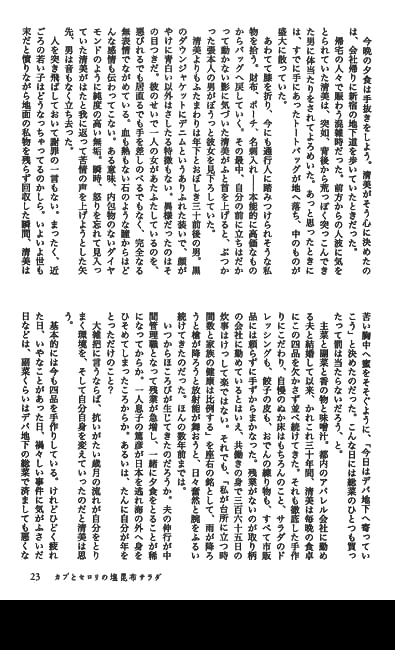 今晩の夕食は手抜きをしよう。清美がそう心に決めたの
は、会社帰りに新宿の地下道を歩いていたときだった。
帰宅の人々で賑わう混雑時だった。前方からの人波に気を
とられていた清美は、突如、背後から荒っぽく突っこんでき
た男に体当たりをされてよろめいた。あっと思ったときに
は、すでに手にあったトートバッグが地へ落ち、中のものが
盛大に散っていた。
あわてて膝を折り、今にも通行人に踏みつけられそうな私
物を拾う。財布、ポーチ、名刺入れ――本能的に高価なもの
からバッグへ戻していく。その最中、自分の前に立ちはだか
って動かない影に気づいた清美がふと首を上げると、ぶつか
った張本人の男がぼうっと彼女を見下ろしていた。
清美よりもふたまわりは年下とおぼしき三十前後の男。黒
のダウンジャケットにデニムというありふれた装いで、顔が
やけに青白い以外はさしたる特徴もない。異様だったのはそ
の目つきだ。彼のせいで一人の女があたふたしているのを、
悪びれるでも居直るでも手を差しのべるでもなく、完全なる
無表情でながめている。血も熱もない石のような瞳からはど
んな感情も伝わってこない。ある意味、内包物のないダイヤ
モンドのように純度の高い無垢。瞬時、怒りを忘れて見入っ
ていた清美がはたと我に返って苦情の声を上げようとした矢
先、男は音もなく立ち去った。
人を突き飛ばしておいて謝罪の一言もない。まったく、近
ごろの若い子はどうなっちゃってるのかしら。いよいよ世も
末だと憤りながら地面の私物を残らず回収した瞬間、清美は
苦い胸中へ蜜をそそぐように、「今日はデパ地下へ寄ってい
こう」と決めたのだった。こんな日には総菜のひとつも買っ
たって罰は当たらないだろう、と。
主菜と副菜と香の物と味噌汁。都内のアパレル会社に勤め
る夫と結婚して以来、かれこれ三十年間、清美は毎晩の食卓
にこの四品を欠かさず並べ続けてきた。それも徹底した手作
りにこだわり、自慢のぬか床はもちろんのこと、サラダのド
レッシングも、餃子の皮も、おでんの練り物も、すべて市販
品には頼らずに手ずからまかなった。残業がないのが取り柄
の会社に勤めているとはいえ、共働きの身で三百六十五日の
炊事はけっして楽ではない。それでも、「私が台所に立つ時
間数と家族の健康は比例する」を座右の銘として、雨が降ろ
うと槍が降ろうと放射能が舞おうと、日々奮然と腕をふるい
続けてきたのだった。ほんの数年前までは。
いつからほころびが生じてきたのだろうか。夫の伸行が中
間管理職となって残業が急増し、一緒に夕食をとることが稀
になってからか。一人息子の篤彦が日本を逃れ海の外へ身を
ひそめてしまったころからか。あるいは、たんに自分が年を
とっただけのこと?
大雑把に言うならば、抗いがたい歳月の流れが自分をとり
まく環境を、そして自分自身を変えていったのだと清美は思
う。
基本的には今も四品を手作りしている。けれどひどく疲れ
た日、いやなことがあった日、禍々しい事件に気がふさいだ
日などは、副菜くらいはデパ地下の総菜で済ましても悪くな
23 カブとセロリの塩昆布サラダ